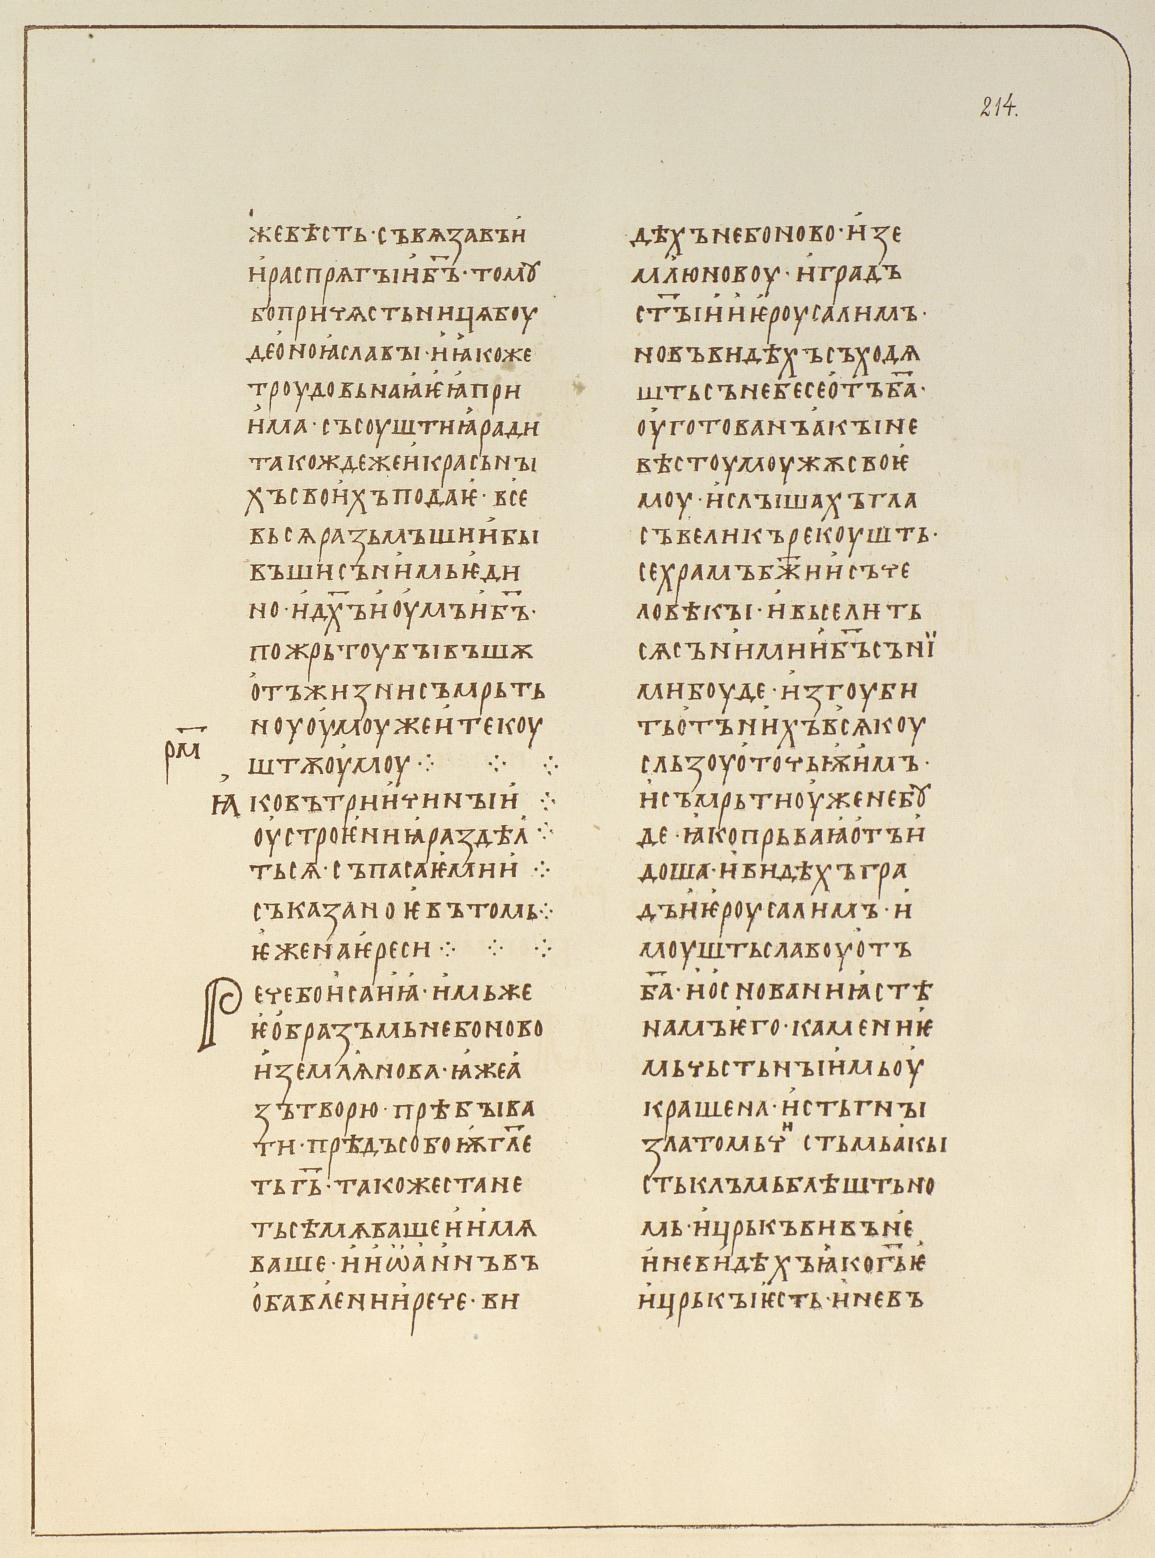 214.
жевѣсть·съвѧзавъи
ираспрѧгъіиб҃ъ·томꙋ
бопричѧстьницѧбоу
деоноꙗславъі·иꙗкоже
троудовьнаꙗѥꙗпри
има·съсоуштиꙗради
такождежеикрасьнъі
хъсвоихъподаѥ·все
вьсѧразьмъшиибъі
въшисънимьѥди
но·идх҃ъиоумъиб҃ъ·
пожрьтоубъівъшѫ
отъжизнисъмрьть
ноуоумоужеитекоу
рм҃
штѫоумоу
ꙗковътриичинъіи
оустроѥниꙗраздѣл
тьсѧ·съпасаѥмии
съказаноѥвътомь
ѥженаѥреси
Речебоисаиꙗ·имьже
ѥобразъмьнебоново
иземлѧнова·ꙗжеа
зътворю·прѣбъіва
ти·прѣдъсобоѭгл҃е
тьгь҃·такожестане
тьсѣмѧвашеиимѧ
ваше·ииѡаннъвъ
обавлениирече·ви
дѣхънебоново·изе
млюновоу·иградъ
ст҃ъіииѥроусалимъ·
новъвидѣхъсъходѧ
штьсънебесеотъба҃·
оуготованъакъіне
вѣстоумоужѫсвоѥ
моу·ислъішахъгла
съвеликърекоушть·
сехрамъбж҃иисъче
ловѣкъі·ивьселить
сѧсънимииб҃ъсъни
мибоуде·изгоуби
тьотънихъвсѧкоу
сльзоуоточьѭимъ·
исъмрьтноуженебꙋ
де·ꙗкопрьваꙗотъи
доша·ивидѣхъгра
дъиѥроусалимъ·и
моуштьславоуотъ
ба҃·иоснованиꙗстѣ
намъѥго·камениѥ
мьчьстьнъіимьоу
крашена·истьгнъі
златомьчистьмьакъі
стькльмьблѣштьно
мь·ицрькъвивъне
иневидѣхъꙗкогь҃ѥ
ицрькъіѥсть·иневъ